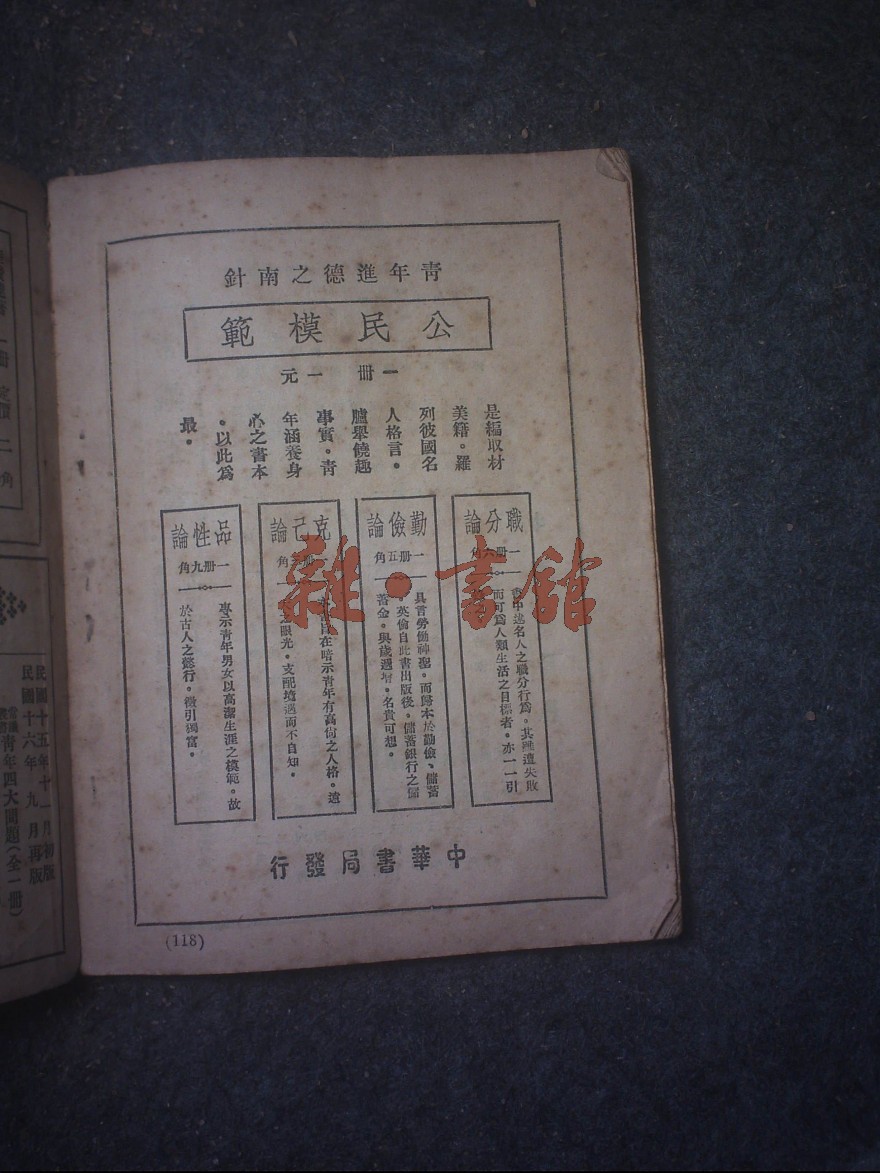 青年進德之南針
公民模範
一冊 一元
是編取材
美籍。羅
列彼國名
人格言。
臚舉饒趣
事實。青
年涵養身
心之書本
。以此爲
最。
職分論
一冊六角
書中述名人之職分行爲。其雖遭失敗
而可爲人類生活之目標者。亦一一引
勤儉論
一冊五角
具言勞働神聖。而歸本於勤儉、儲蓄
。英倫自此書出版後。儲蓄銀行之儲
蓄金。與歲遞增。名貴可想。
克己論
旨在暗示青年有高尚之人格。遠
眼光。支配境遇而不自知。
品性論
一冊九角
專示青年男女以高潔生涯之模範。故
於古人之懿行。徵引獨富。
中華書局發行
(118)
雜·書館
民國十五年十一月初版
民國十六年九月再版
青年四大問題(全一冊)